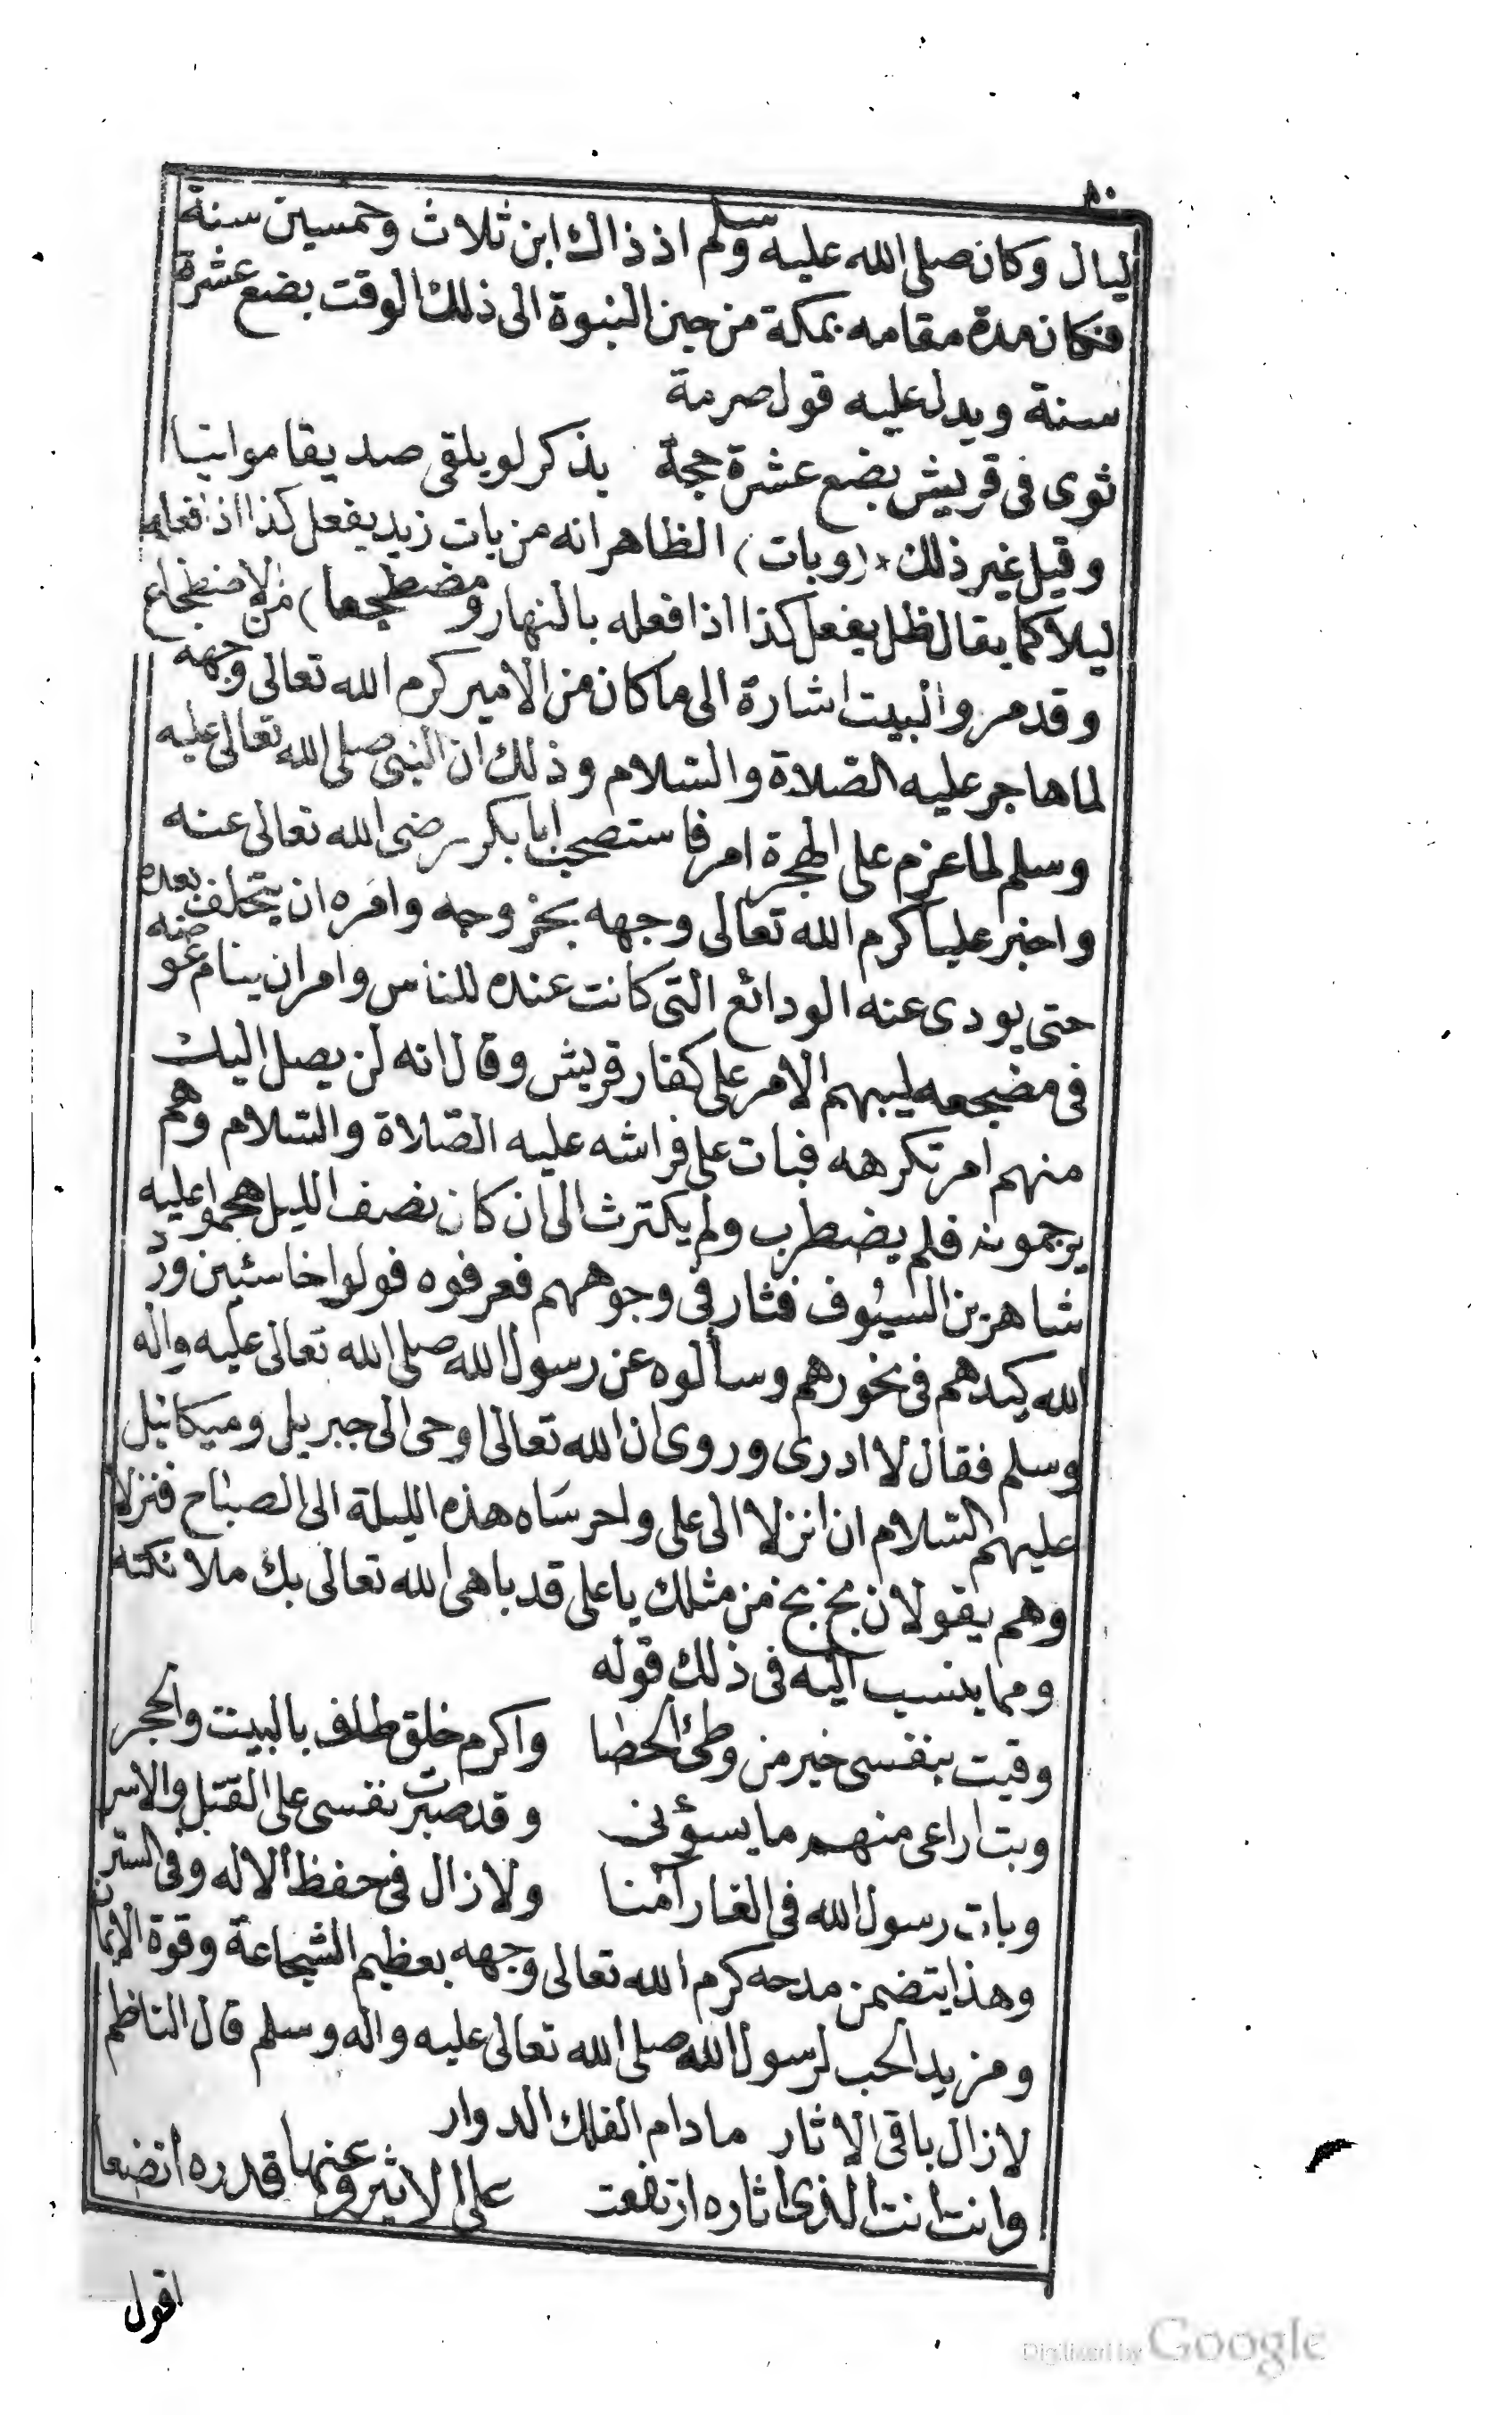 ٨٠
ليال وكان صلى الله عليه وسلم اذ ذاك ابن ثلاث وخمسين سنة
فكان مدة مقامه بمكة من حين النبوة الى ذلك الوقت بضع عشرة
سنة ويدل عليه قول صرمة
ثوى فى قريش بضع عشرة حجة يذكر لو يلقى صديقا مواتيا
وقيل غير ذلك * (وبات) الظاهر انه من بات زيد يفعل كذا اذا فعله
ليلا كما يقال ظل يفعل كذا اذا فعله بالنهار و مضطجعا) من الاضطجاع
وقد مر والبيت اشارة الى ما كان من الامير كرم الله تعالى وجهه
لما هاجر عليه الصلاة والسلام وذلك ان النبى صلى الله تعالى عليه
وسلم لما عزم على الهجرة امر فاستصحب ابا بكر رضى الله تعالى عنه
واخبر عليا كرم الله تعالى وجهه بخروجه وامره ان يتخلف بعده
حتى يودى عنه الودائع التى كانت عنده للناس وامر ان ينام عوضه
فى مضجعه ليبهم الامر على كفار قريش وقال انه لن يصل اليك
منهم امر تكرهه فبات على فراشه عليه الصلاة والسلام وهم
يرجمونه فلم يضطرب ولم يكترث الى ان كان نصف الليل هجموا عليه
شاهرين السيوف فثار فى وجوههم فعرفوه فولوا خاسئين ورد
الله كيدهم فى نحورهم وسألوه عن رسول الله صلى الله تعالى عليه واله
وسلم فقال لا ادرى وروى ان الله تعالى اوحى الى جبريل وميكائيل
عليهم السلام ان انزلا الى على واحرساه هذه الليلة الى الصباح فنزلا
وهم يقولان بخ بخ من مثلك يا على قد باهى الله تعالى بك ملائكته
ومما ينسب اليه فى ذلك قوله
وقيت بنفسى خير من وطئ الحصا واكرم خلق طاف بالبيت والحجر
وبت اراعى منهم ما يسؤنى وقد صبرت نفسى على القتل والاسر
وبات رسول الله فى الغار آمنا ولا زال فى حفظ الاله وفى الستر
وهذا يتضمن مدحه كرم الله تعالى وجهه بعظيم الشجاعة وقوة الايمان
ومزيد الحب لرسول الله صلى الله تعالى عليه واله وسلم قال الناظم
لا زال باقى الاثار ما دام الفلك الدوار
وانت انت الذى اثاره ارتفعت على الاثير وعنها قدره اتضعا
اقول
Digitized by Google